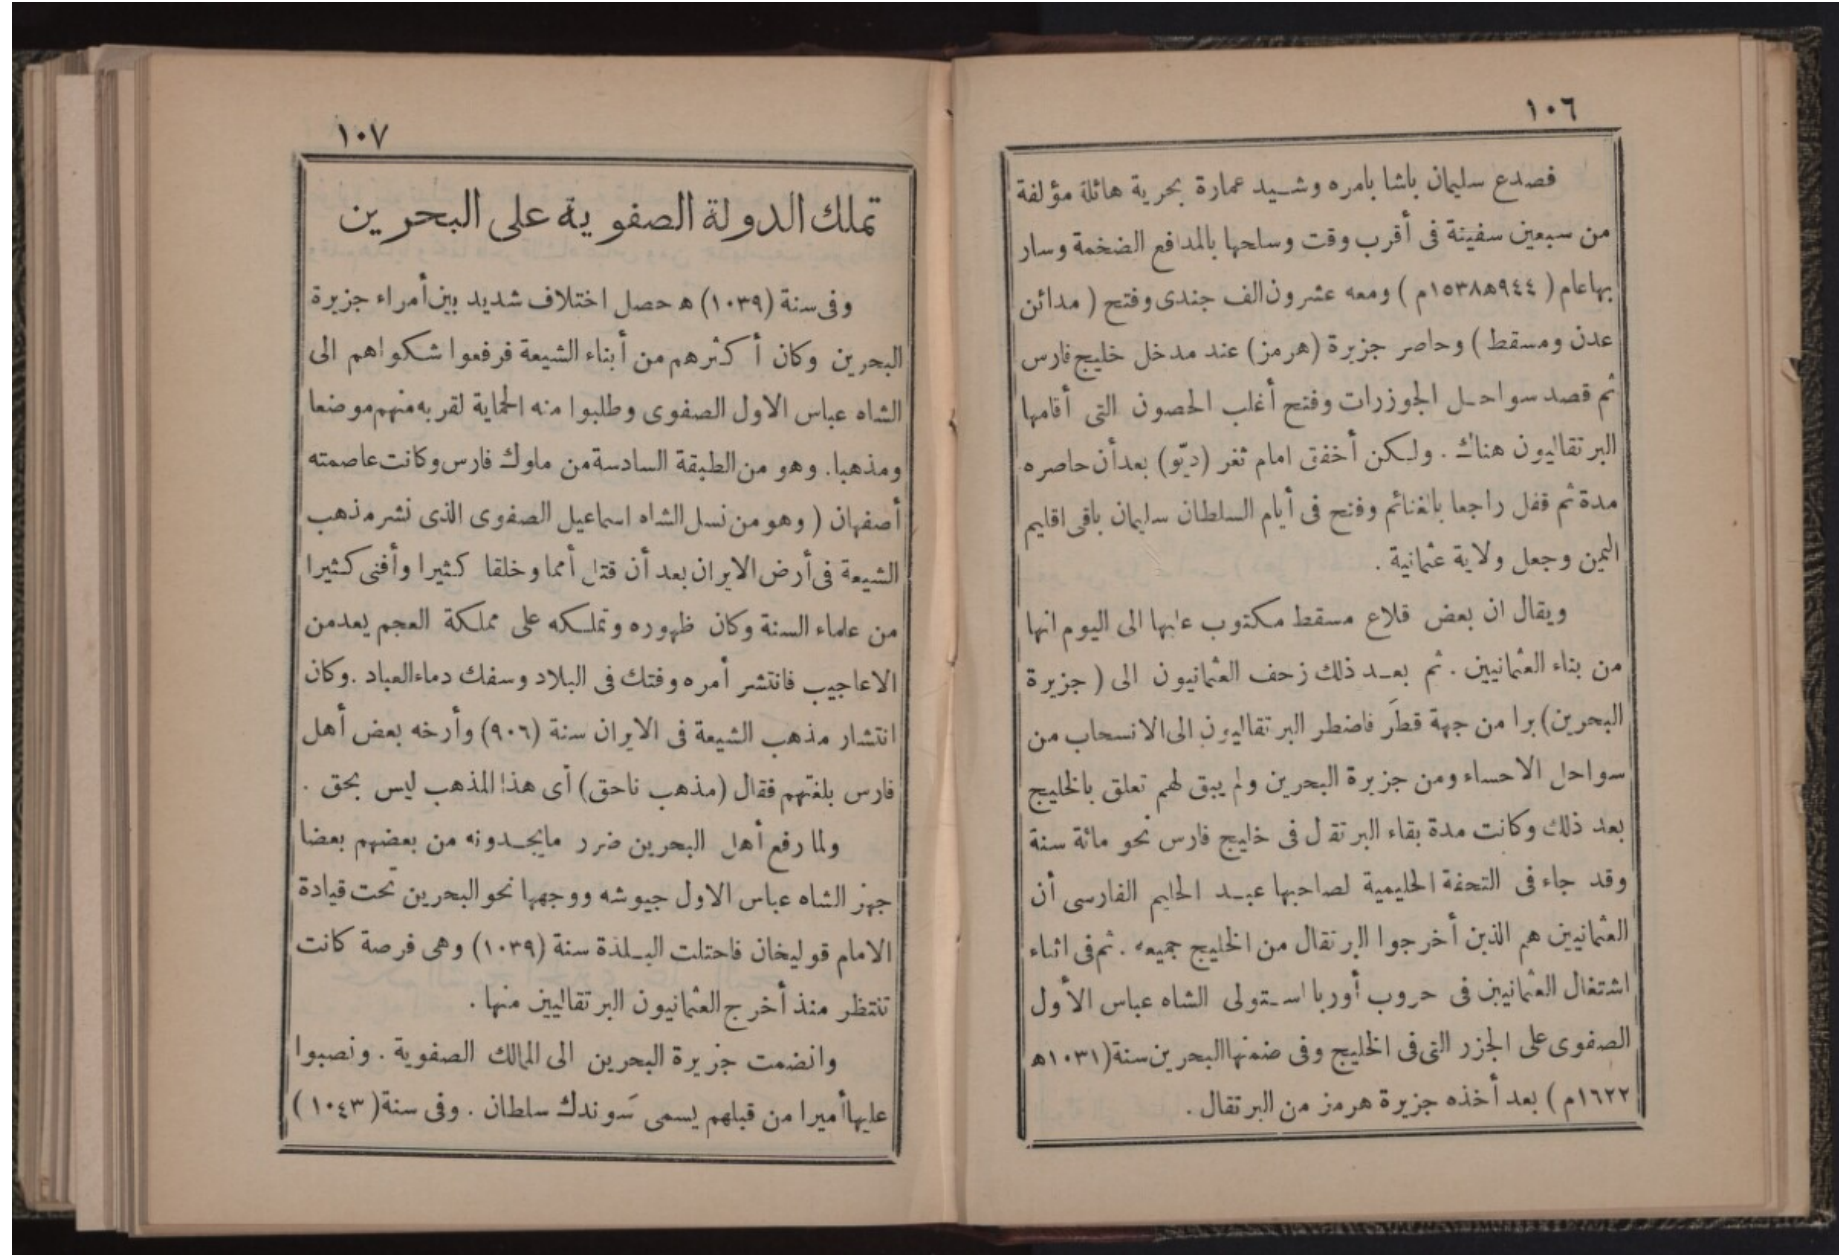 ١٠٦
فصدع سليمان باشا بامره وشيد عمارة بحرية هائلة مؤلفة
من سبعين سفينة فى أقرب وقت وسلحها بالمدافع الضخمة وسار
بها عام ( ٩٤٤ﻫ١٥٣٨م ) ومعه عشرون الف جندى وفتح ( مدائن
عدن ومسقط ) وحاصر جزيرة (هرمز) عند مدخل خليج فارس
ثم قصد سواحل الجوزرات وفتح أغلب الحصون التى أقامها
البرتقاليون هناك . ولكن أخفق امام ثغر (ديّو) بعد أن حاصره
مدة ثم قفل راجعا بالغنائم وفتح فى أيام السلطان سليمان باقى اقليم
اليمن وجعل ولاية عثمانية .
ويقال ان بعض قلاع مسقط مكتوب عليها الى اليوم انها
من بناء العثمانيين . ثم بعد ذلك زحف العثمانيون الى ( جزيرة
البحرين) برا من جهة قطَر فاضطر البرتقاليون الى الانسحاب من
سواحل الاحساء ومن جزيرة البحرين ولم يبق لهم تعلق بالخليج
بعد ذلك وكانت مدة بقاء البرتقال فى خليج فارس نحو مائة سنة
وقد جاء فى التحفة الحليمية لصاحبها عبد الحليم الفارسى أن
العثمانيين هم الذين أخرجوا البرتقال من الخليج جميعه . ثم فى اثناء
اشتغال العثمانيين فى حروب أوربا استولى الشاه عباس الأول
الصفوى على الجزر التى فى الخليج وفى ضمنها البحرين سنة (١٠٣١ﻫ
١٦٢٢م ) بعد أخذه جزيرة هرمز من البرتقال .
١٠٧
تملك الدولة الصفوية على البحرين
وفى سنة (١٠٣٩) ﻫ حصل اختلاف شديد بين أمراء جزيرة
البحرين وكان أكثرهم من أبناء الشيعة فرفعوا شكواهم الى
الشاه عباس الاول الصفوى وطلبوا منه الحماية لقربه منهم موضعا
ومذهبا. وهو من الطبقة السادسة من ملوك فارس وكانت عاصمته
أصفهان ( وهو من نسل الشاه اسماعيل الصفوى الذى نشر مذهب
الشيعة فى أرض الايران بعد أن قتل أمما وخلقا كثيرا وأفنى كثيرا
من علماء السنة وكان ظهوره وتملكه على مملكة العجم يعد من
الاعاجيب فانتشر أمره وفتك فى البلاد وسفك دماء العباد . وكان
انتشار مذهب الشيعة فى الايران سنة (٩٠٦) وأرخه بعض أهل
فارس بلغتهم فقال (مذهب ناحق) أى هذا المذهب ليس بحق .
ولما رفع أهل البحرين ضرر ما يجدونه من بعضهم بعضا
جهز الشاه عباس الاول جيوشه ووجهها نحو البحرين تحت قيادة
الامام قوليخان فاحتلت البلدة سنة (١٠٣٩) وهى فرصة كانت
تنتظر منذ أخرج العثمانيون البرتقاليين منها .
وانضمت جزيرة البحرين الى الممالك الصفوية . ونصبوا
عليها أميرا من قبلهم يسمى سَوندك سلطان . وفى سنة ( ١٠٤٣ )